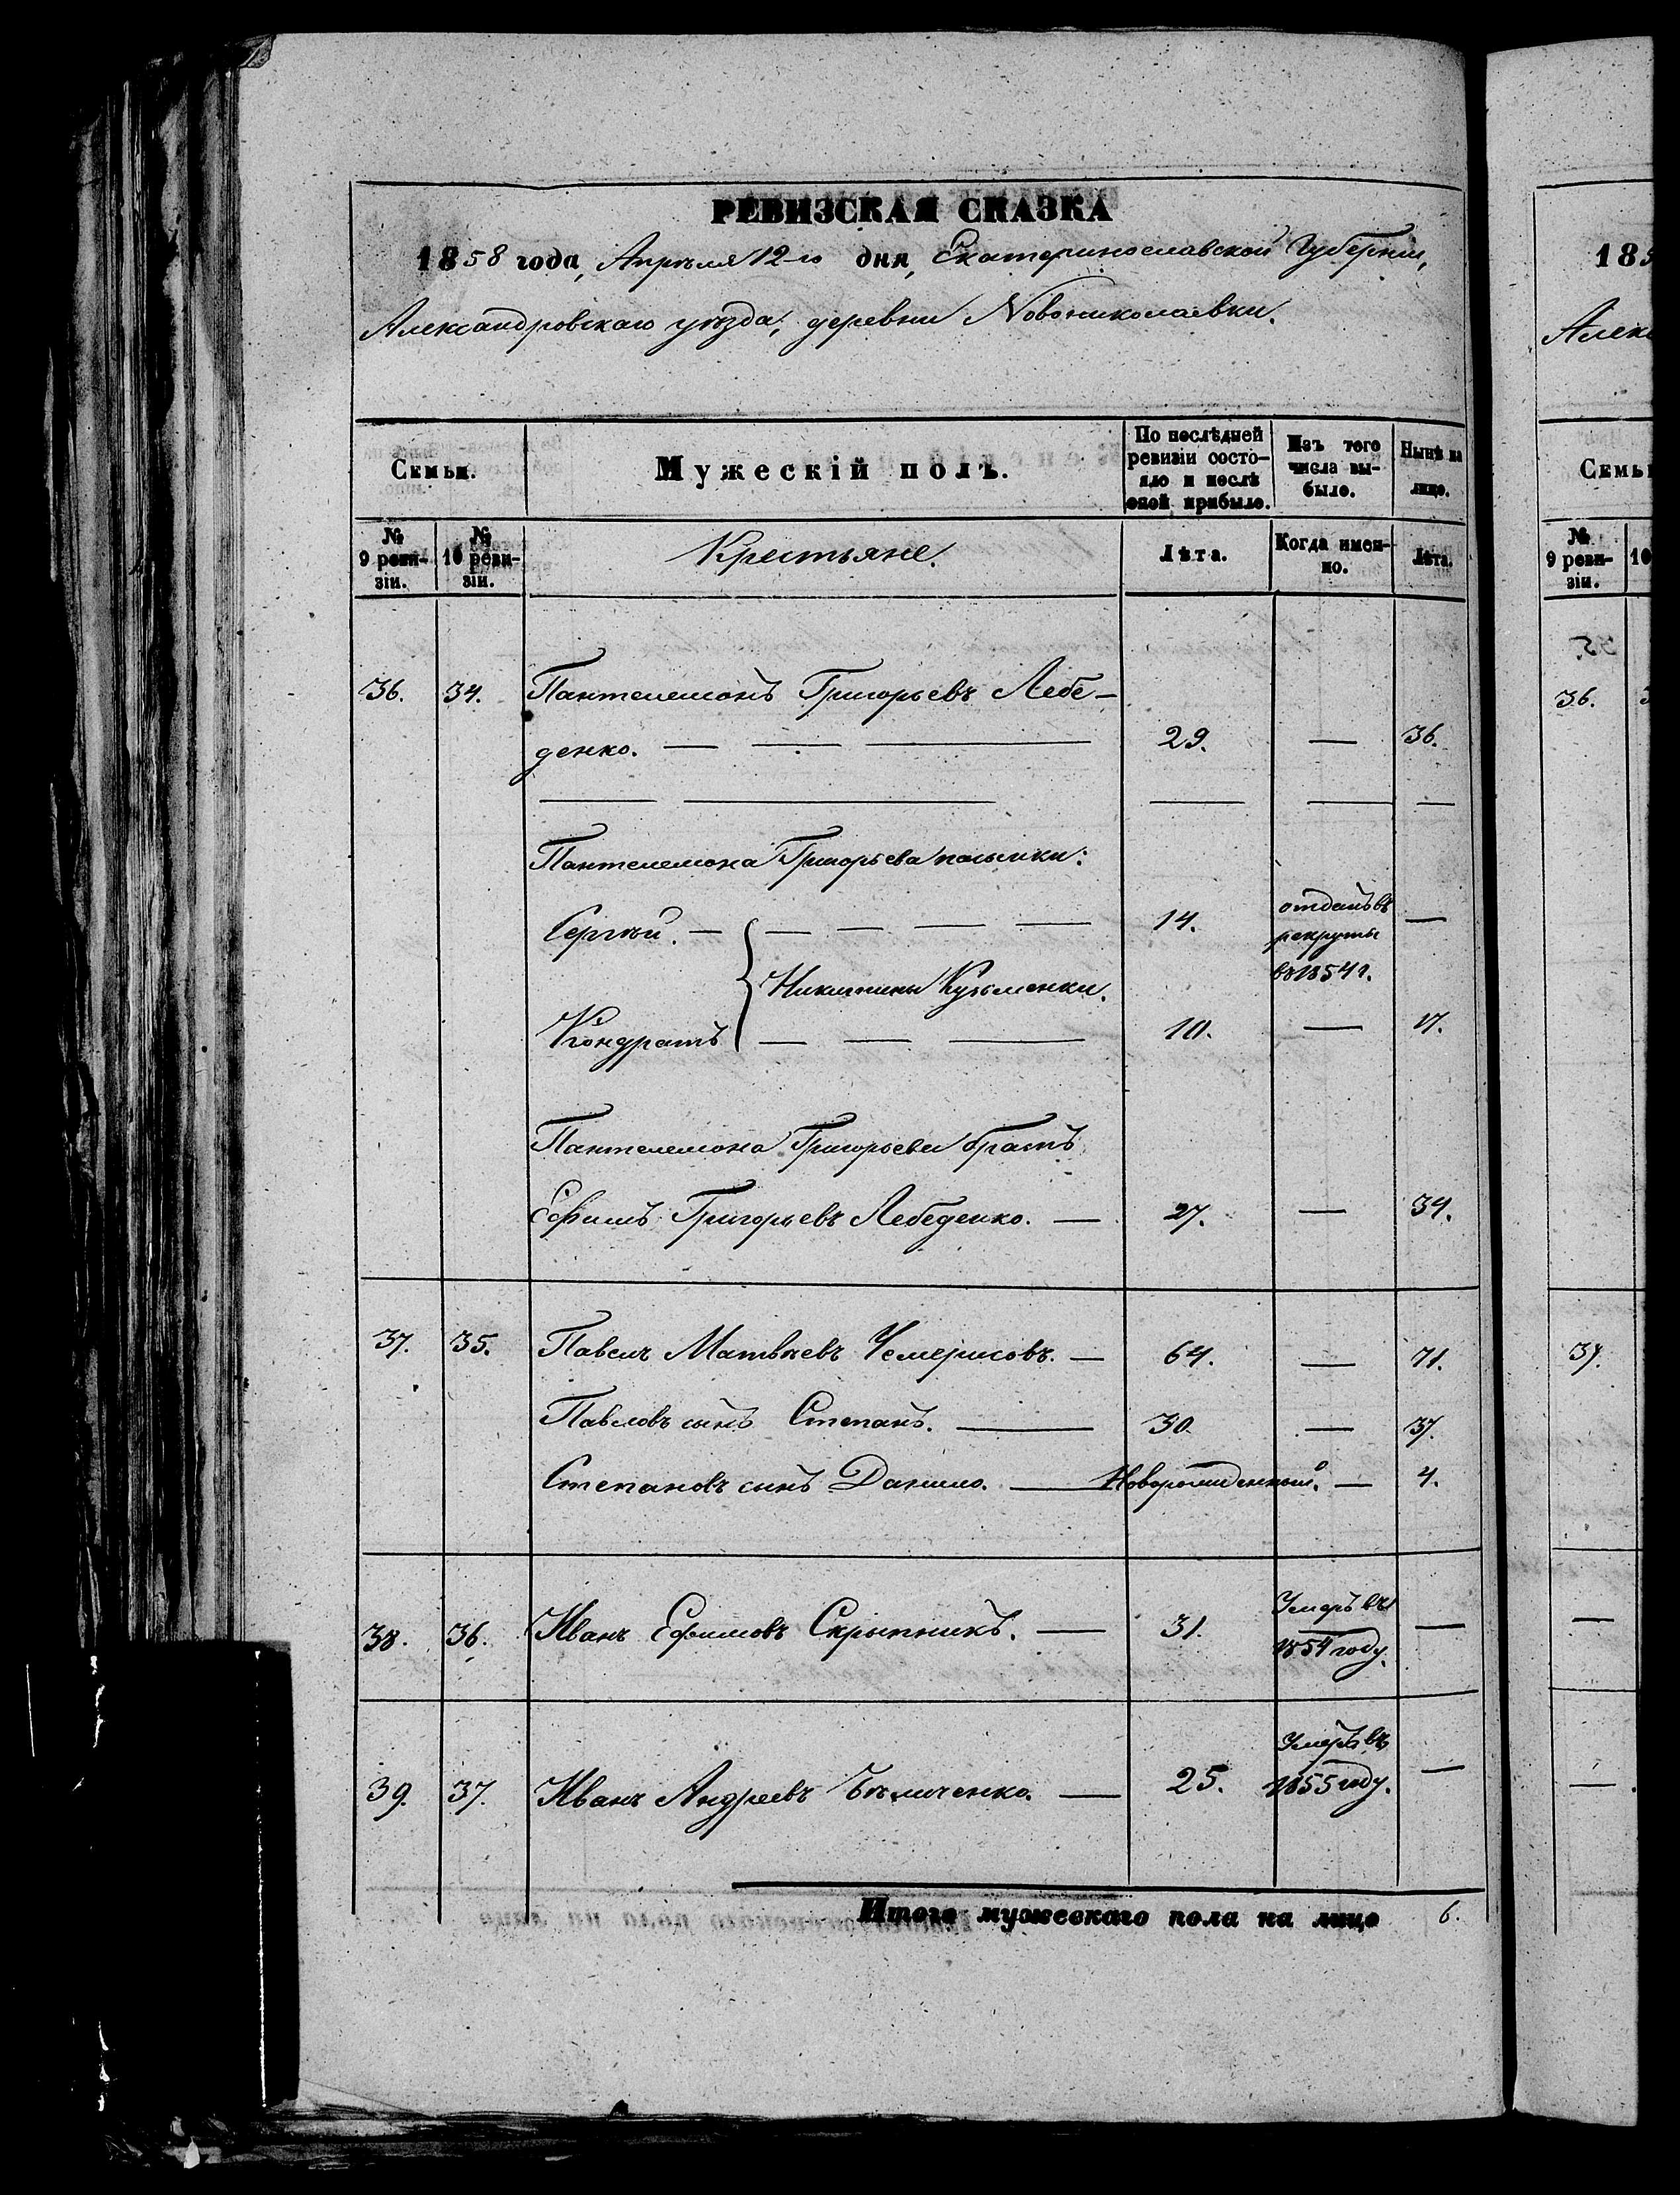 РЕВИЗСКАЯ СКАЗКА
1858 года, Апрѣля 12-го дня, Екатеринославской Губерніи,
Александровскаго уѣзда, деревни Новониколаевки.
Семьи.
Мужескій полъ.
По послѣдней ревизіи состояло и послѣ оной прибыло.
Изъ того числа выбыло.
Нынѣ на лицо.
№ 9 ревизіи.
№ 10 ревизіи.
Крестьяне.
Лѣта.
Когда именно.
Лѣта.
36. 34. Пантелемонъ Григорьевъ Лебе-
денко. — — — 29. — 36.
Пантелемона Григорьева пасынки:
Сергѣй. — — — — — 14. отданъ въ рекруты въ 1854 г. —
Никитины Кузьменки.
Кондратъ — — — 10. — 17.
Пантелемона Григорьева братъ
Ефимъ Григорьевъ Лебеденко. — 27. — 34.
37. 35. Павелъ Матвѣевъ Чемерисовъ. — 64. — 71.
Павловъ сынъ Степанъ. — 30. — 37.
Степановъ сынъ Данило. — Новорожденный. — 4.
38. 36. Иванъ Ефимовъ Скрыпникъ. — 31. Умеръ въ 1854 году. —
39. 37. Иванъ Андреевъ — 25. Умеръ въ 1855 году. —
Итого мужескаго пола на лицо 6.
185
Алек
Семьи
№ 9 ревизіи.
10
35.
36.
37.